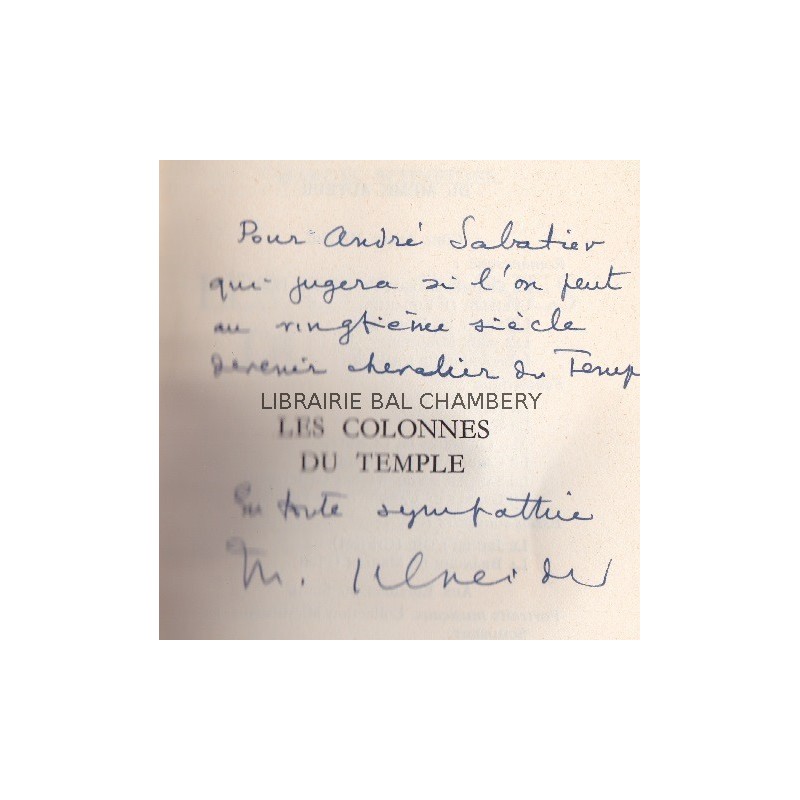 Pour André Sabatier
qui jugera si l'on peut
au vingtième siècle
devenir chevalier du Temp
LIBRAIRIE BAL CHAMBERY
LES COLONNES
DU TEMPLE
En toute sympathie
M. Schneider